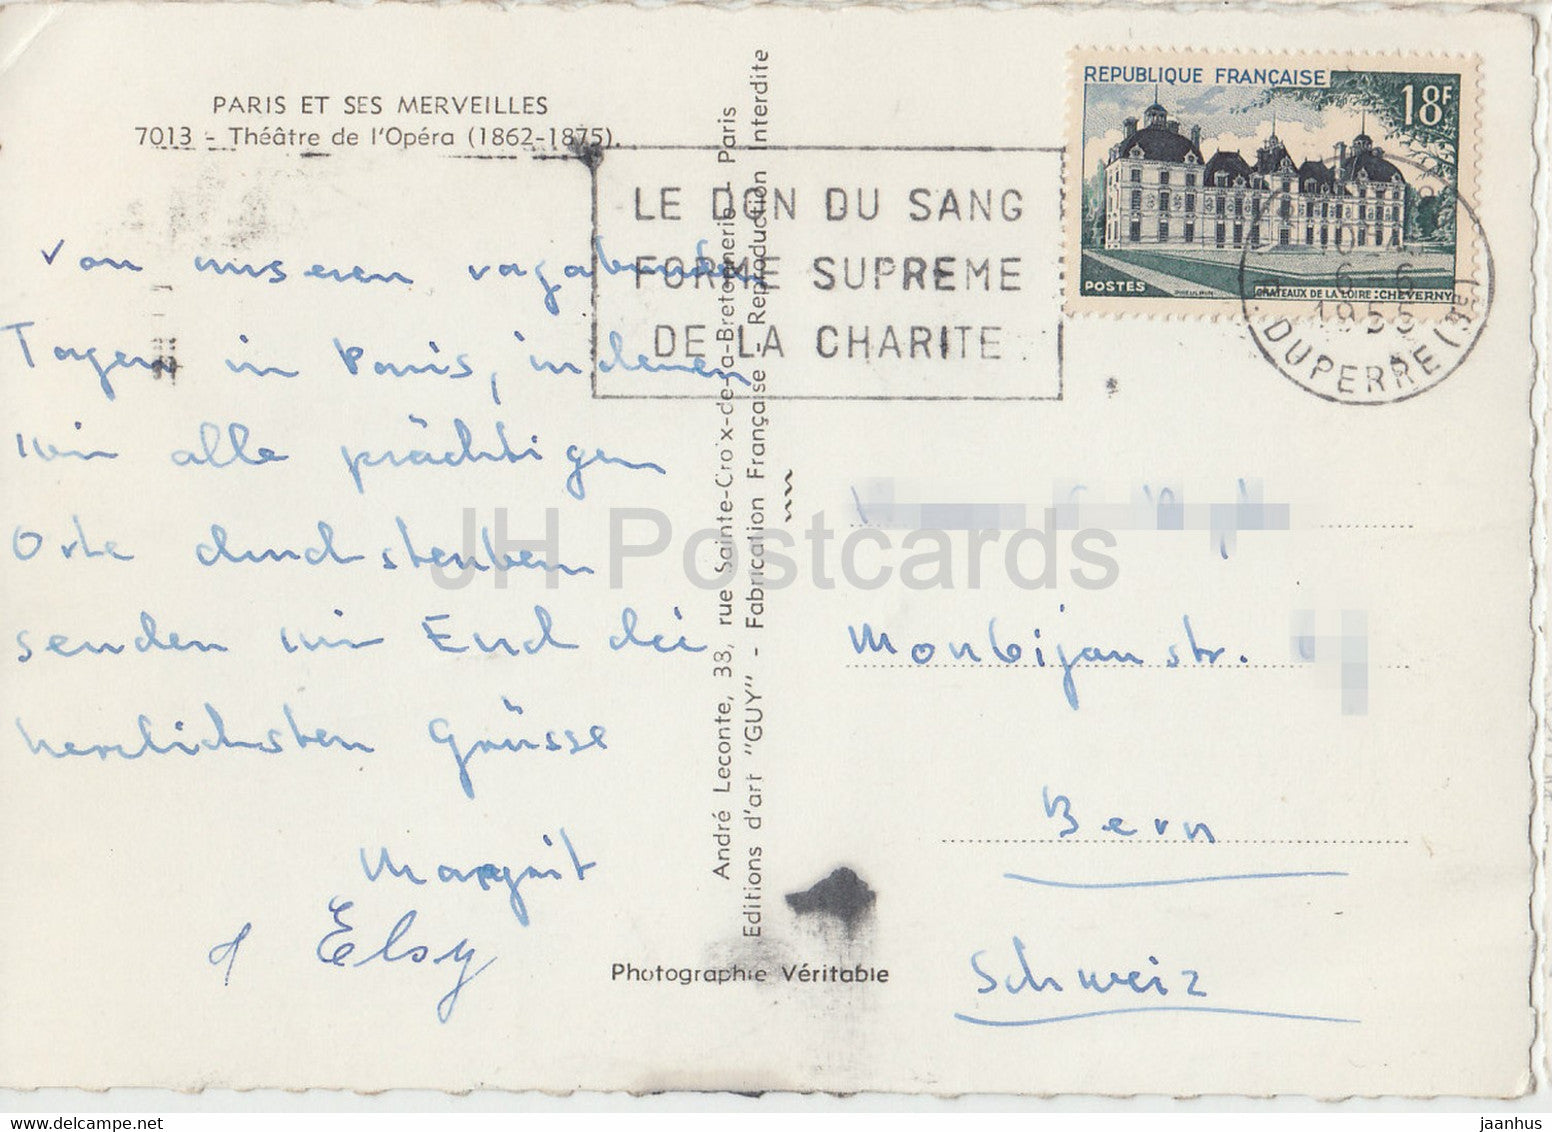 PARIS ET SES MERVEILLES
7013 - Théâtre de l'Opéra (1862-1875).
REPUBLIQUE FRANÇAISE
18F
POSTES
CHATEAUX DE LA LOIRE : CHEVERNY
6-6
1955
DUPERRE (9E)
LE DON DU SANG
FORME SUPREME
DE LA CHARITE
Von unseren vagabunden
Tagen in Paris, in denen
wir alle prächtigen
Orte durchstreubern
senden wir Euch die
herzlichsten Grüsse
Margrit
& Elsy
André Leconte, 38, rue Sainte-Croix-de-la-Bretonnerie - Paris
Editions d'art "GUY" - Fabrication Française - Reproduction Interdite
Photographie Véritable
Monbijoustr.
Bern
Schweiz
JH Postcards
jaanhus